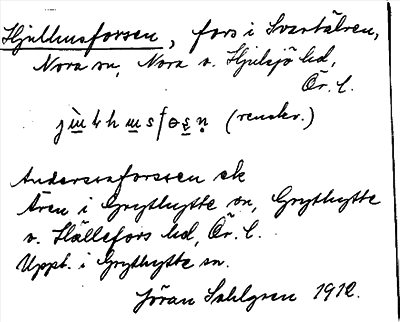 Hjulhusforsen, fors i Svartälven,
Nora sn, Nora o. Hjulsjö hd,
Ör. l.
(renskr.)
Andersaforsen ek
Även i Grythytte sn, Grythytte
o. Hällefors hd, Ör. l.
Uppt. i Grythytte sn.
Jöran Sahlgren 1912.